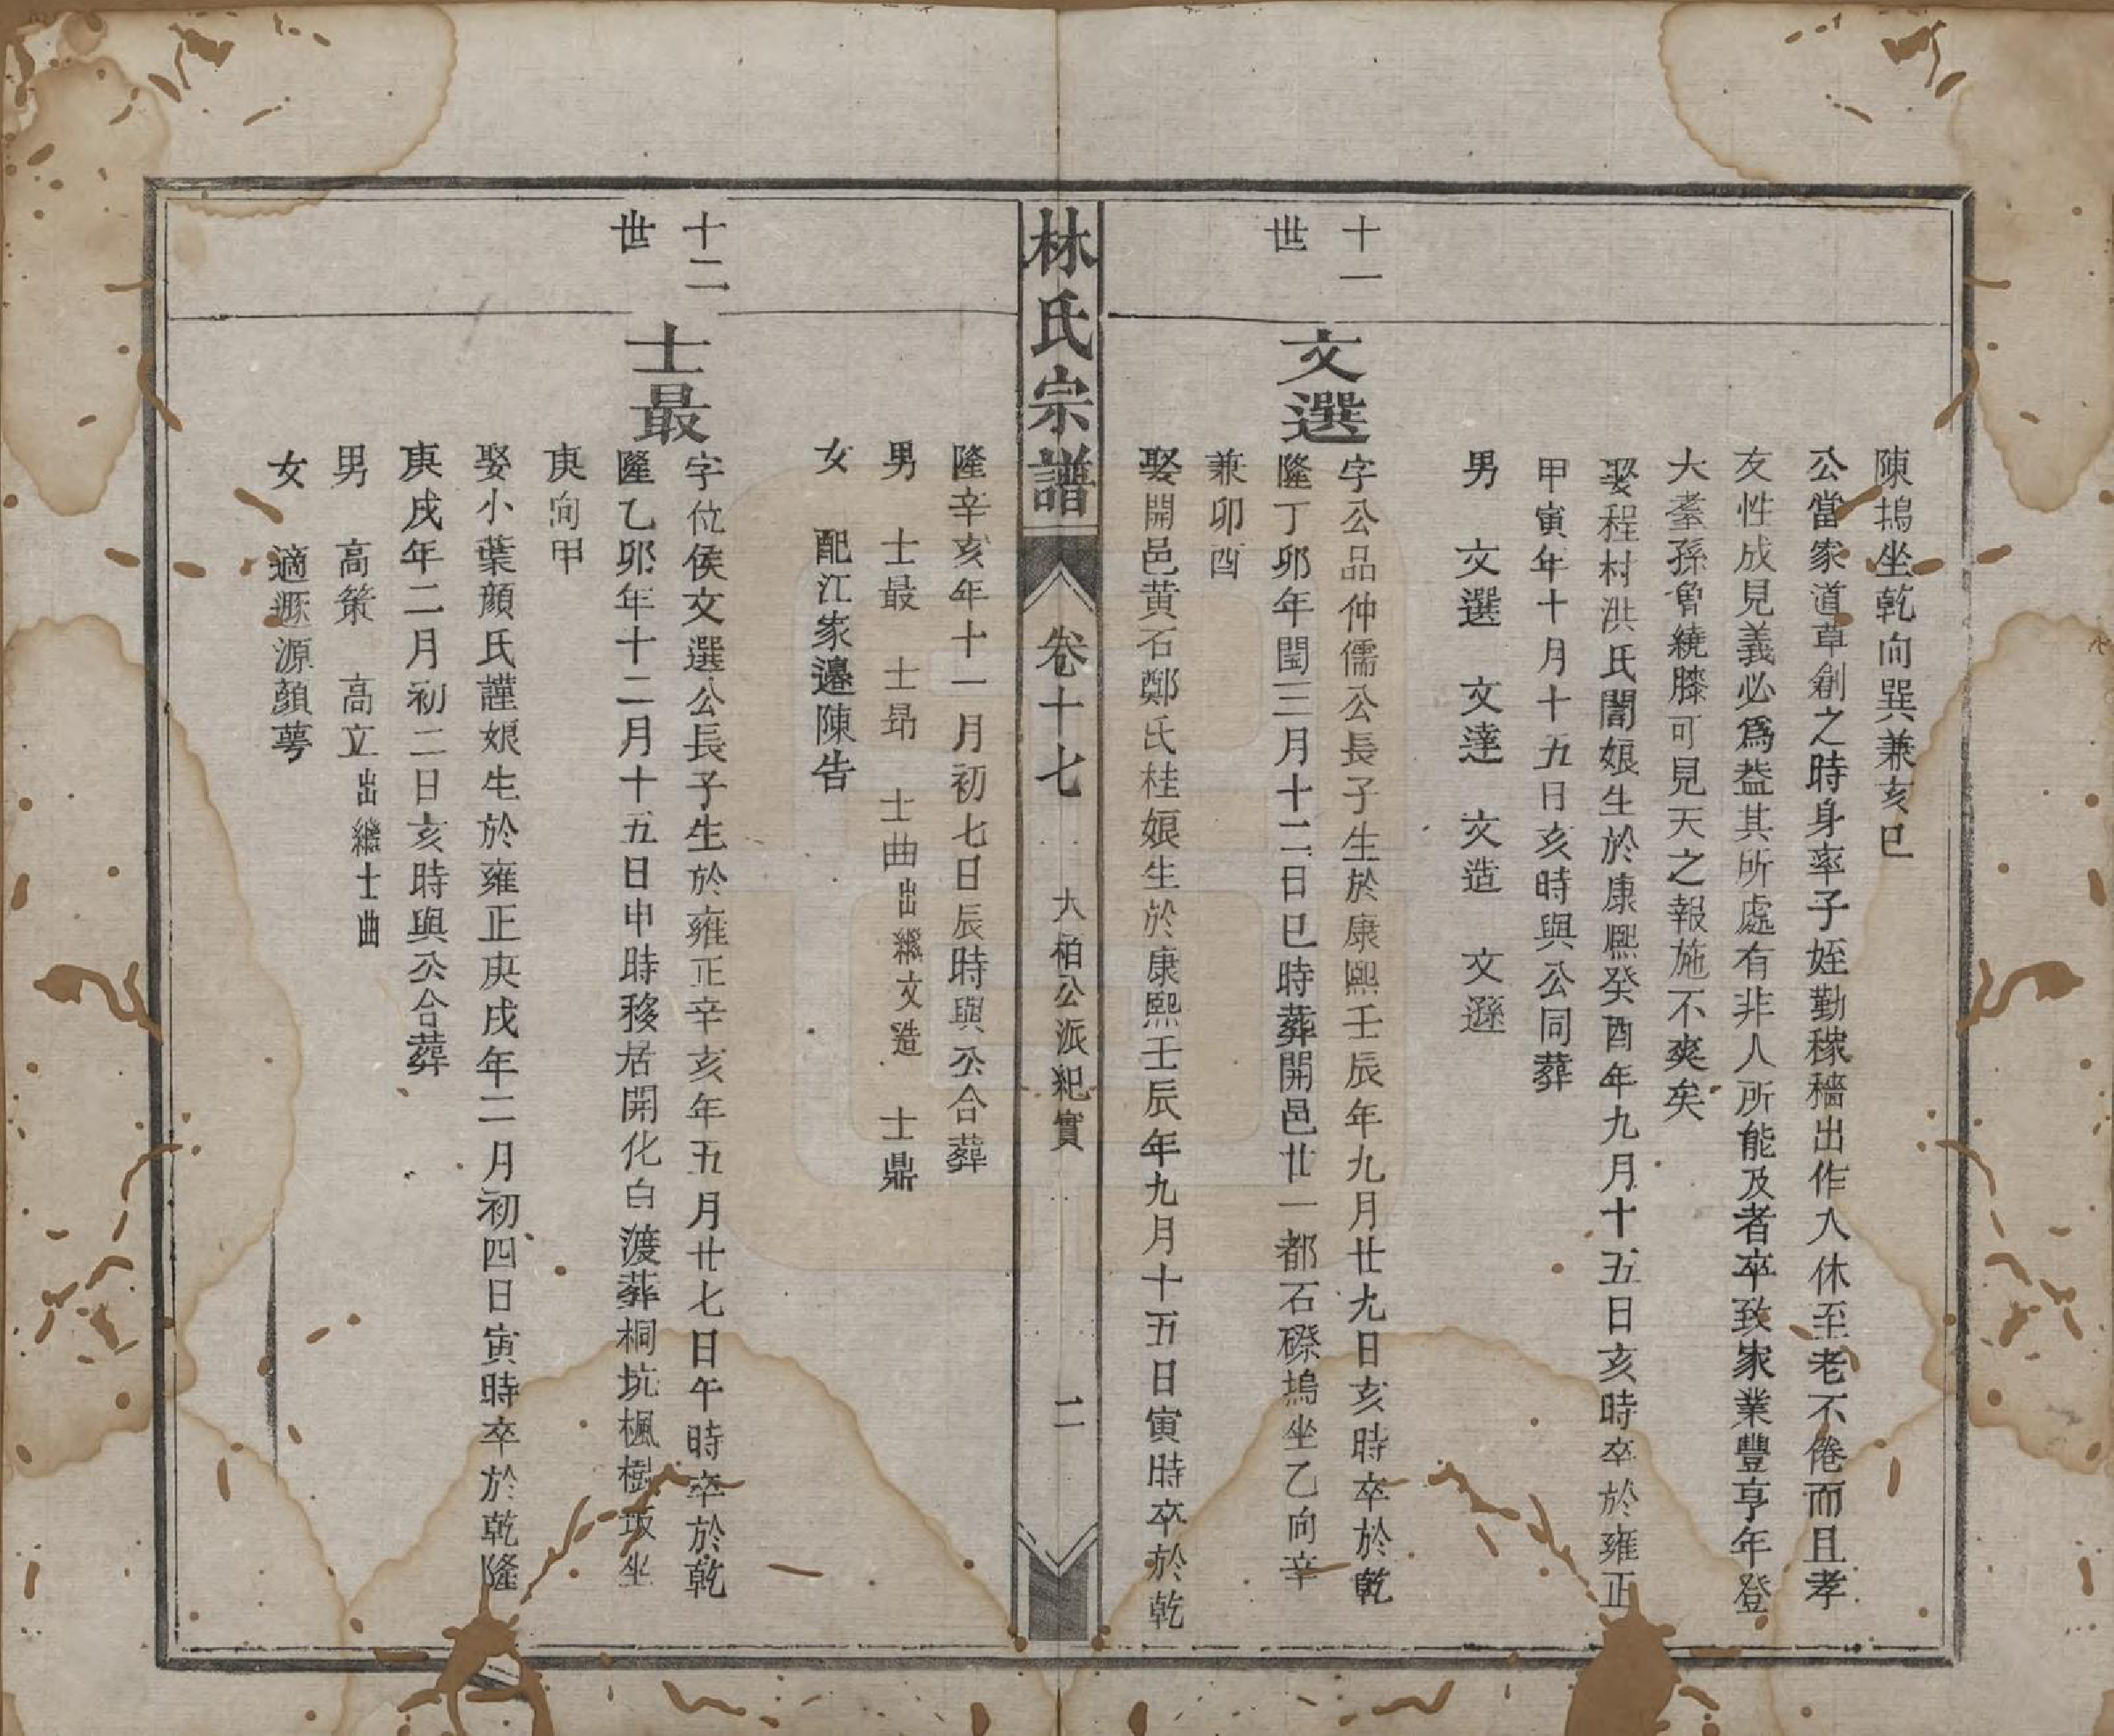 陳塢坐乾向巽兼亥巳
公當家道草創之時身率子姪勤稼穡出作入休至老不倦而且孝
友性成見義必爲益其所處有非人所能及者卒致家業豐亨年登
大耋孫曾繞膝可見天之報施不爽矣
娶程村洪氏闇娘生於康熙癸酉年九月十五日亥時卒於雍正
甲寅年十月十五日亥時與公同葬
男 文選 文達 文造 文遜
十一世 文選 字公品仲儒公長子生於康熙壬辰年九月廿九日亥時卒於乾
隆丁卯年閏三月十二日巳時葬開邑廿一都石磜塢坐乙向辛
兼卯酉
娶開邑黄石鄭氏桂娘生於康熙壬辰年九月十五日寅時卒於乾
林氏宗譜 卷十七 大栢公派紀實 二
隆辛亥年十一月初七日辰時與公合葬
男 士最 士昻 士曲出繼文造 士鼎
女 配江家邉陳告
十二世 士最 字位侯文選公長子生於雍正辛亥年五月廿七日午時卒於乾
隆乙卯年十二月十五日申時移居開化白渡葬桐坑楓樹坂坐
庚向甲
娶小葉顔氏謹娘生於雍正庚戌年二月初四日寅時卒於乾隆
庚戌年二月初二日亥時與公合葬
男 高策 高立出繼士曲
女 適 源顔